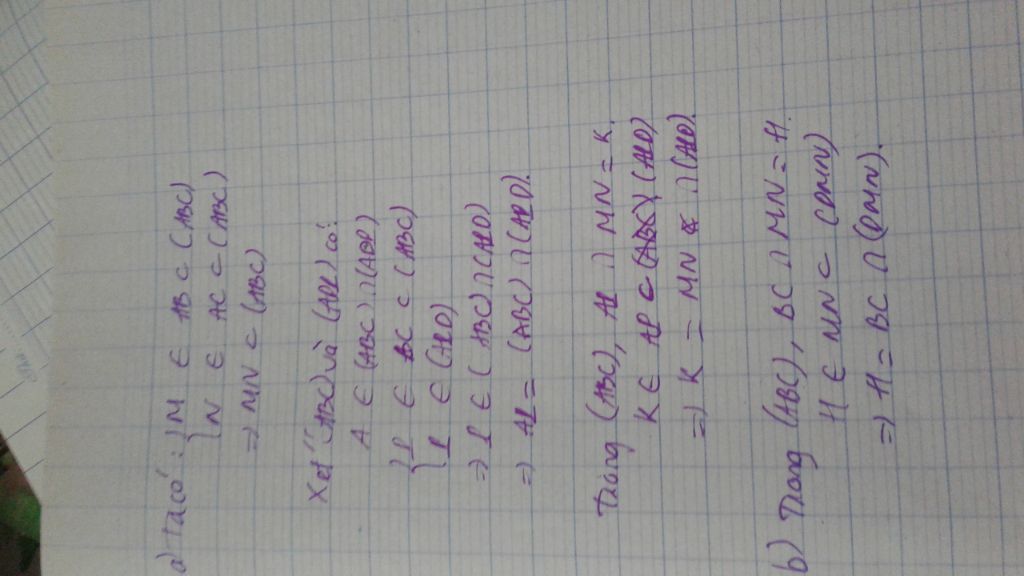 a) Ta có: { M ∈ AB ⊂ (ABC)
N ∈ AC ⊂ (ABC)
=> MN ⊂ (ABC)
Xét (ABC) và (ADI) có:
A ∈ (ABC) ∩ (AID)
{ I ∈ BC ⊂ (ABC)
I ∈ (AID)
=> I ∈ (ABC) ∩ (AID)
=> AI = (ABC) ∩ (AID).
Trong (ABC), AI ∩ MN = K.
K ∈ AI ⊂ (AID)
=> K = MN ∩ (AID).
b) Trong (ABC), BC ∩ MN = H.
H ∈ MN ⊂ (DMN)
=> H = BC ∩ (DMN).